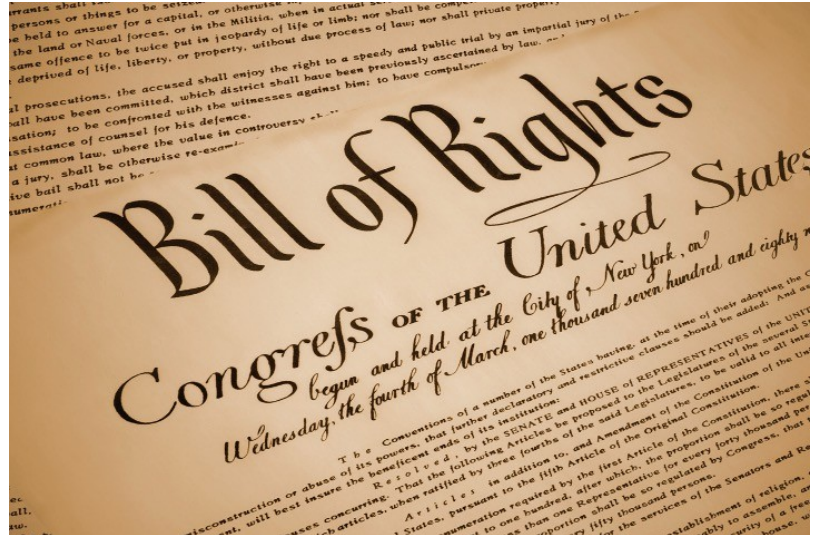 rrants shall
persons or things to be seized
be held to answer for a capital, or otherwise
the land or Naval forces, or in the Militia, when in actual
same offence to be twice put in jeopardy of life or limb; nor shall be
deprived of life, liberty, or property, without due process of law; nor shall private
l prosecutions, the accused shall enjoy the right to a speedy and public trial by an impartial jury of the
all have been committed, which district shall have been previously ascertained by law,
sation; to be confronted with the witnesses against him; to have
ssistance of counsel for his defence.
t common law, where the value in controversy
a jury, shall be otherwise
ive bail shall not be
Bill of Rights
Congreſs OF THE United States
begun and held at the City of New York, on
Wednesday, the fourth of March, one thousand seven hundred and eighty
The Conventions of a number of the States having, at the time of their adopting the
misconstruction or abuse of its powers, that further declaratory and restrictive clauses should be added: And as
ent, will best insure the beneficent ends of its institution:
Resolved, by the SENATE and HOUSE of REPRESENTATIVES of the
uses concurring. That the following Articles be proposed to the Legislatures of the several
ch articles, when ratified by three fourths of the said Legislatures, to be valid to all
Articles in addition to, and Amendment of the Constitution of the
States, pursuant to the fifth Article of the Original Constitution.
enumeration required by the first Article of the Constitution, there
to one hundred, after which, the proportion shall be so
less than one Representative for every forty thousand
proportion shall be so regulated by Congress, that
every fifty thousand persons.
for the services of the Senators and
establishment of religion,
to assemble,
of a free
house,